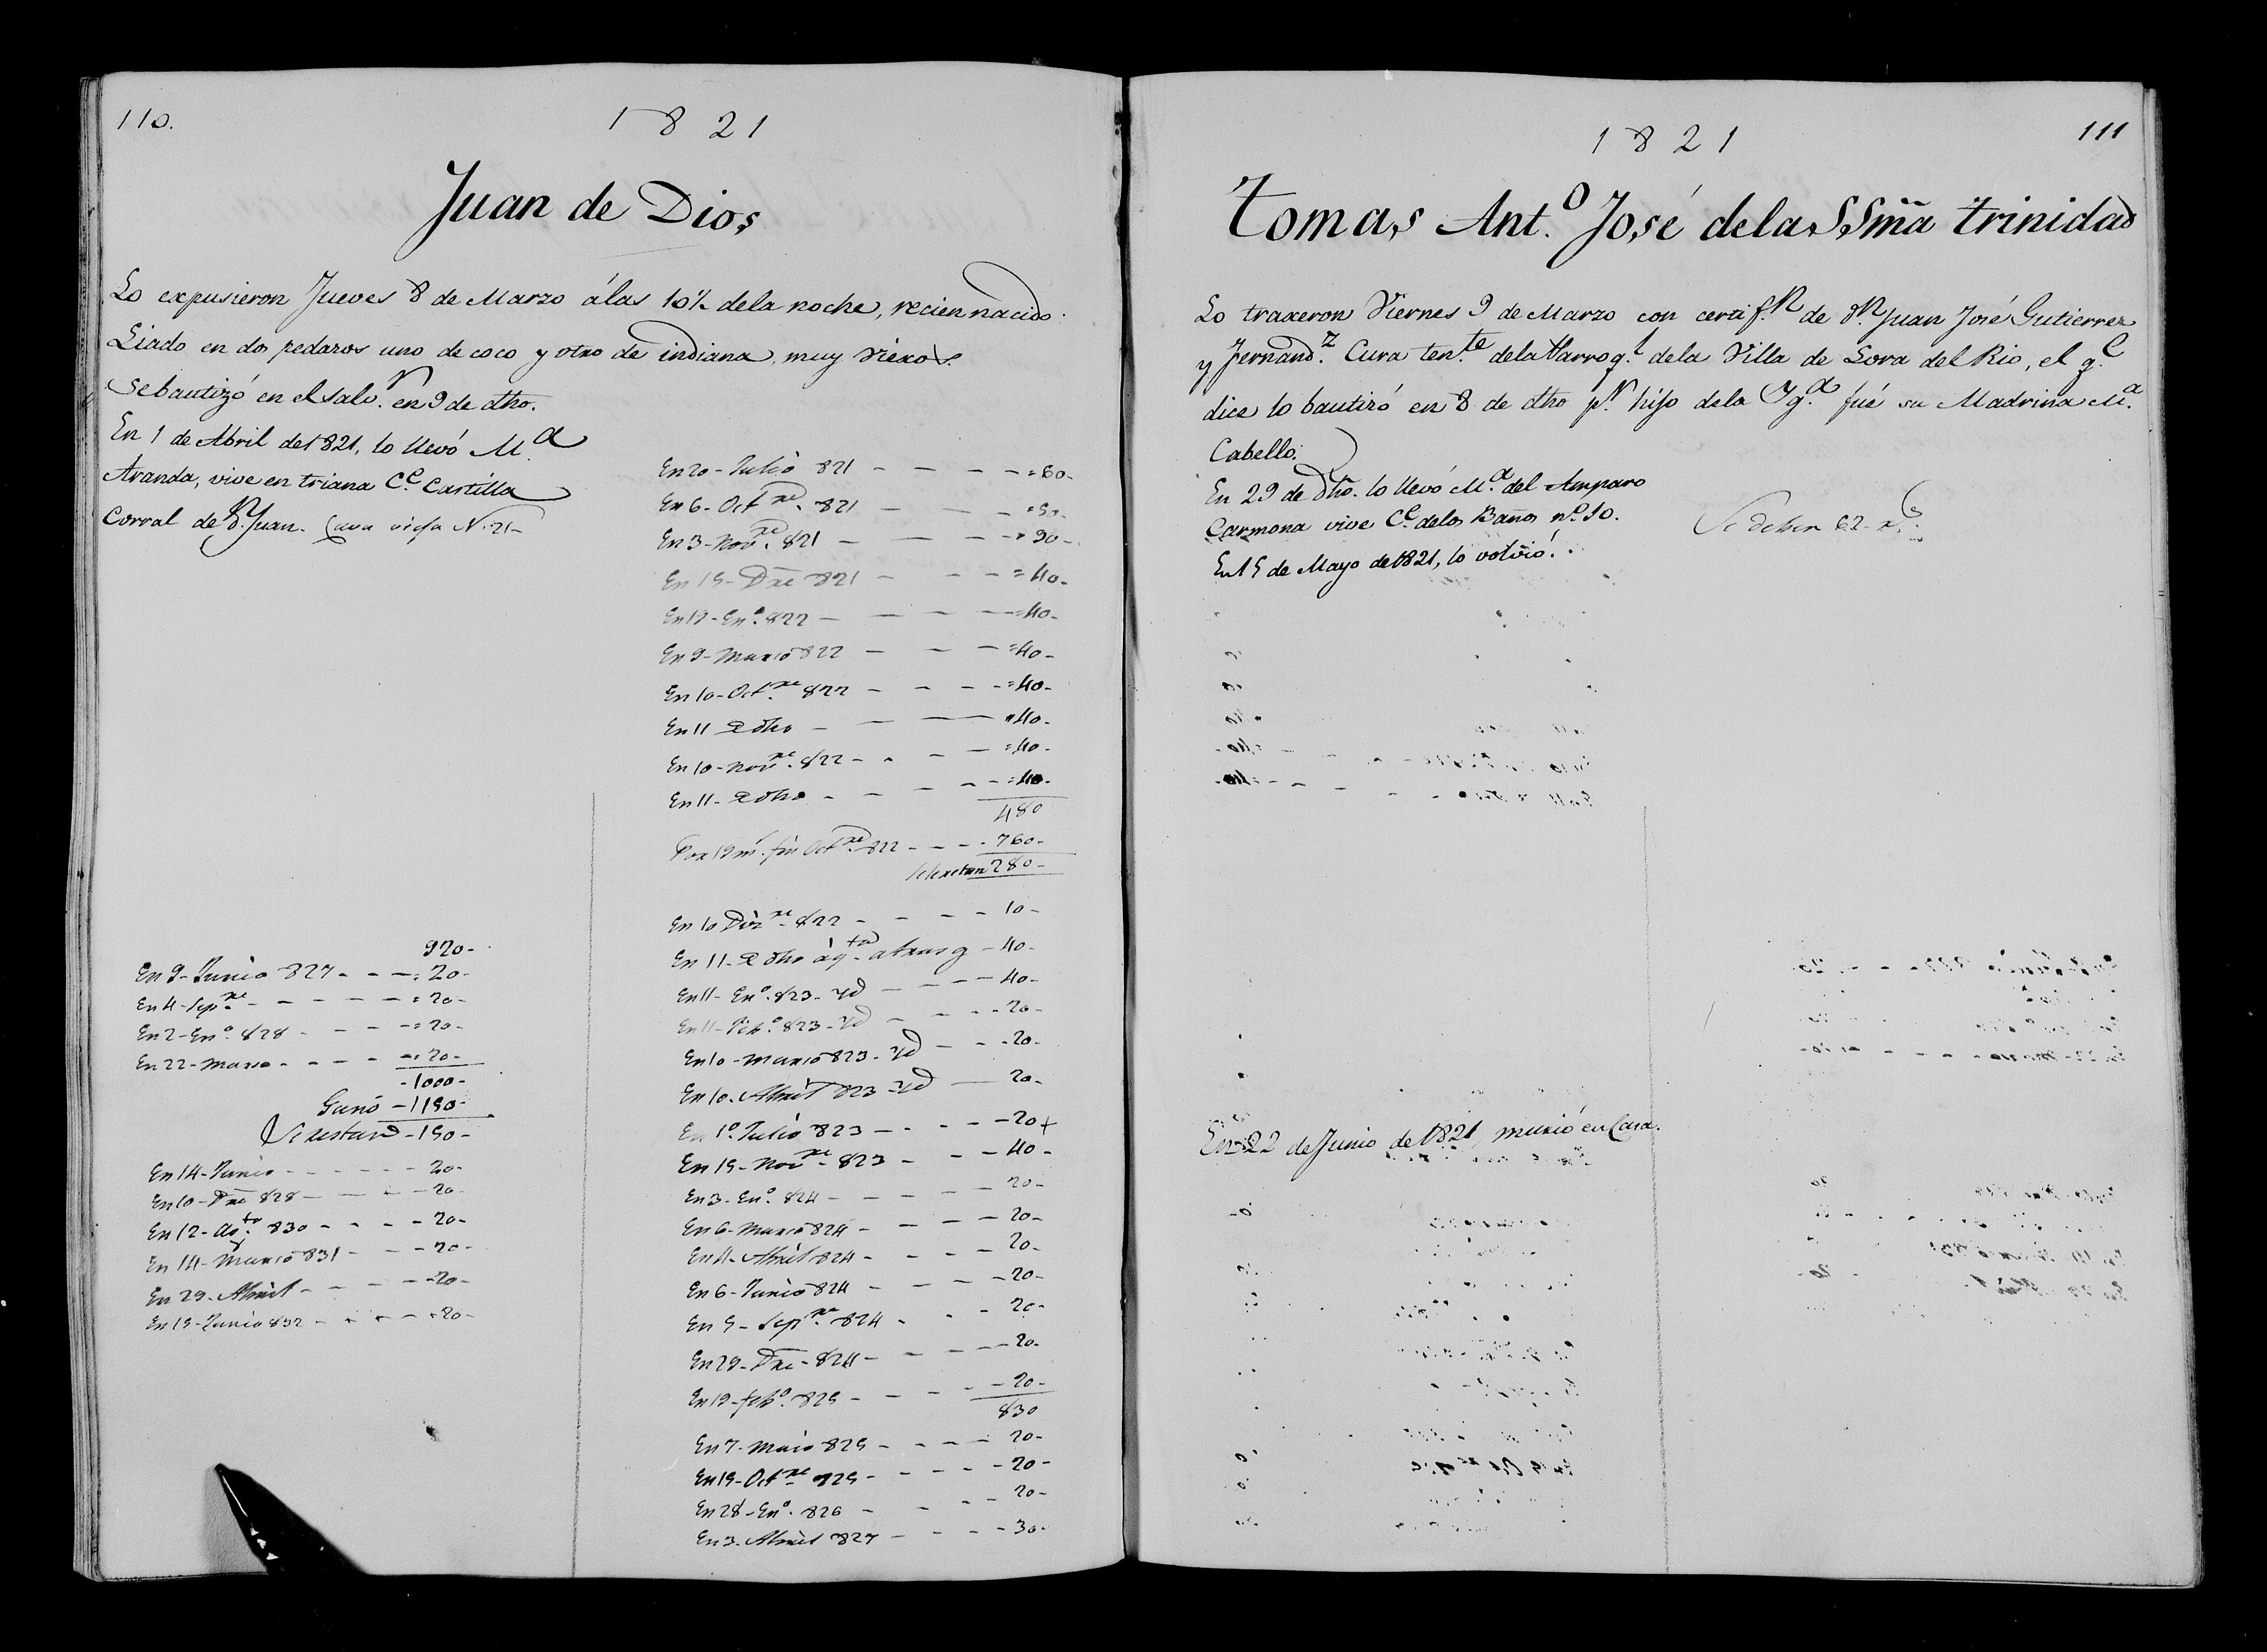 110.
1821
Juan de Dios
Lo expusieron Jueves 8 de Marzo álas 10½ dela noche, recien nacido.
Liado en dos pedazos uno de coco y otro de indiana, muy viexos.
Se bautizó en el Salv.r en 9 de dho.
En 1 de Abril de 1821, lo llevó M.a
Aranda, vive en triana C.e Castilla
Corral de S.n Juan. Cava viefa N. 21-
En 20- Julio 821 - - - -=60-
En 6- Oct.re 821 - - - =50-
En 3- Nov.re 821 - - - -=90-
En 15- Dre 821 - - - =40-
En 19- En.o 822 - - - -=40-
En 9- Marzo 822 - - - =40-
En 10- Oct.re 822 - - - -=40-
En 11 de dho - - - =40-
En 10- Nov.re 822 - - - =40-
En 11- de dho - - - - -=40-
480
Por 19 m.s fin Oct.re 822 - - - -760-
se restan 280-
En 10 Diz.re 822 - - - - 10-
En 11- de dho á q.ta atrasos - 40-
En 11- En.o 823- Yd - - - - 40-
En 11- Feb.o 823- Yd - - - -20-
En 10- Marzo 823- Yd - - -20-
En 10- Abril 823- Yd - 20-
En 1º Julio 823 - - - -20+
En 15- Nov.re 823 - - - 40-
En 3- En.o 824 - - - - - 20-
En 6- Marzo 824 - - - - 20-
En 4- Abril 824 - - - - 20-
En 6- Junio 824 - - - -20-
En 5- Sep.re 824 - - - 20-
En 29- Dre- 824 - - - -20-
En 19- feb.o 825 - - - - -20-
830
En 7- Maio 825 - - - - 20-
En 15- Oct.re 825 - - - - -20-
En 28- En.o 826 - - - 20-
En 3- Abril 827 - - - -30-
920-
En 9- Junio 827 - - -=20-
En 4- Sep.re - - - - -=20-
En 2- En.o 828 - - - -=20-
En 22- Marzo - - - -=20-
-1000-
Ganó -1150-
Se restan -150-
En 14- Junio - - - - - -20-
En 10- Dre 828 - - - -20-
En 12- Ag.to 830 - - - -20-
En 14- Marzo 831 - - -20-
En 29- Abril - - - - -20-
En 15- Junio 832 - - - -=20-
1821
111
Tomas Ant.o José dela SSma trinidad
Lo traxeron Viernes 9 de Marzo con certif.n de D.n Juan José Gutierrez
y Fernand.z Cura ten.te dela Parroq.l dela Villa de Lora del Rio, el q.e
dice lo bautizó en 8 de dho p.r hijo dela Yg.a fué su Madrina M.a
Cabello.
En 29 de dho. lo llevó M.a del Amparo
Carmona vive C.e delos Baños n.o 10.
En 15 de Mayo de 1821, lo volvió.
Se deben 62 r.s
En 22 de Junio de 1821, murió en Casa.